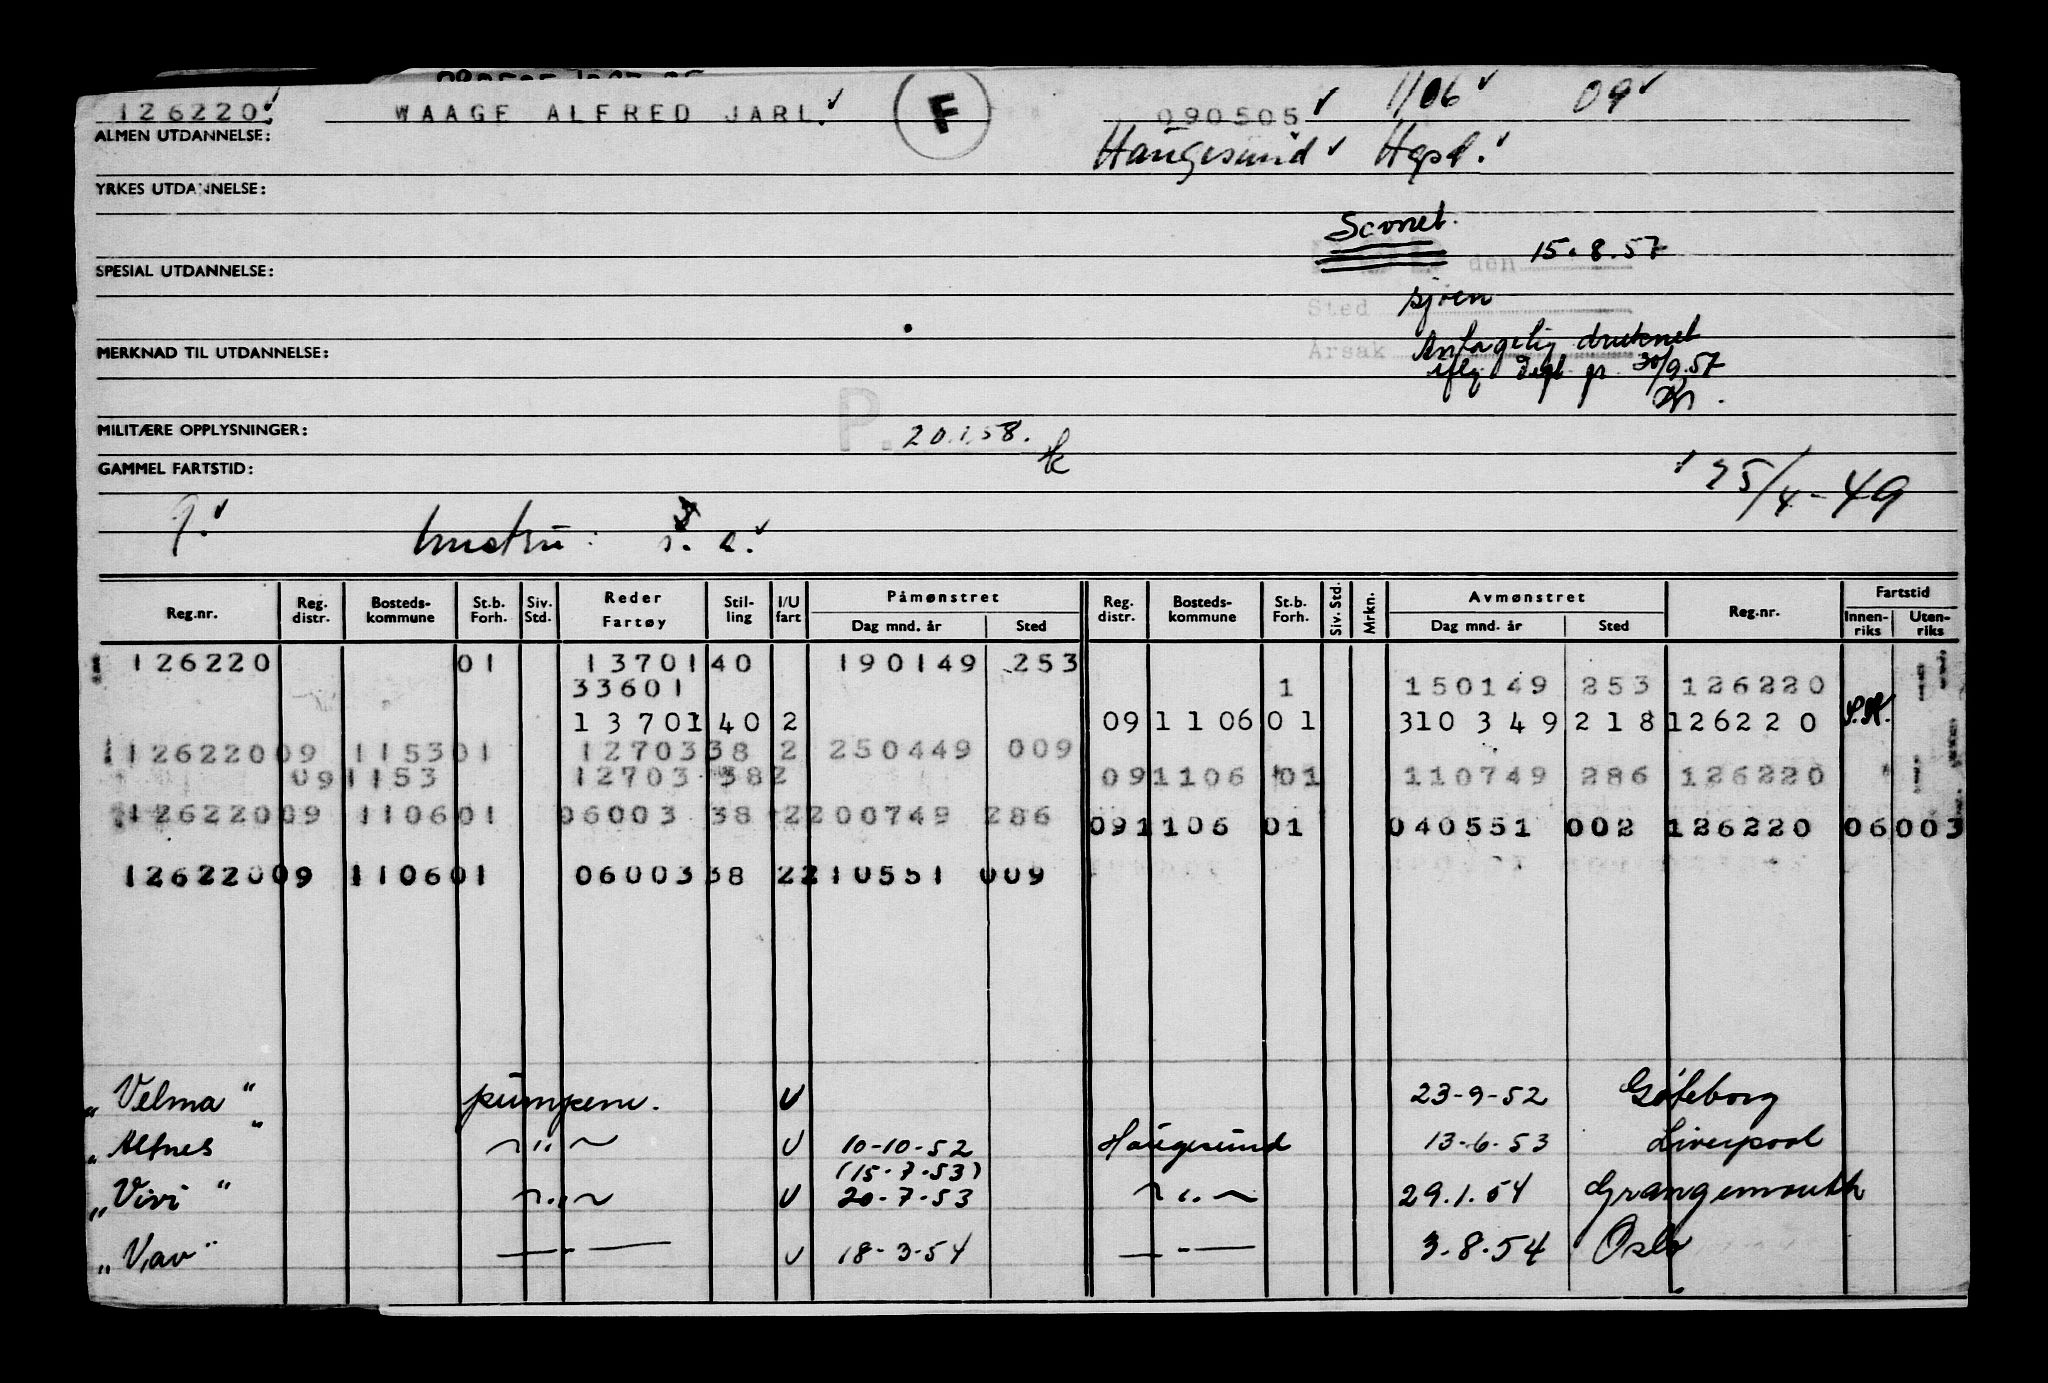 126220. WAAGE ALFRED JARL. F 090505 1106 09
ALMEN UTDANNELSE: Haugesund
YRKES UTDANNELSE:
Savnet.
den 15.8.57
SPESIAL UTDANNELSE:
Sted sjøen
Årsak Antagelig druknet
MERKNAD TIL UTDANNELSE:
iflg 30/9.57
P.
MILITÆRE OPPLYSNINGER: 20.1.58.
GAMMEL FARTSTID:
25/4-49
g. hustru: s. a.
Reg.nr. Reg. distr. Bosteds-kommune St.b. Forh. Siv. Std. Reder Fartøy Stil-ling I/U fart Påmønstret Dag mnd. år Sted Reg. distr. Bosteds-kommune St.b. Forh. Siv. Std. Mrkn. Avmønstret Dag mnd. år Sted Reg.nr. Fartstid Innen-riks Uten-riks
126220 01 13701 40 190149 253
33601 1 150149 253 126220
13701 40 2 09 1106 01 310349 218 126220
126220 09 1153 01 12703 38 2 250449 009
09 1153 12703 38 2 09 1106 01 110749 286 126220
126220 09 1106 01 06003 38 2 200749 286
09 1106 01 040551 002 126220 06003
126220 09 1106 01 06003 38 2 210551 009
"Velma" pumpem. U 23-9-52 Gøteborg
"Alfnes" ~ " ~ U 10-10-52 Haugesund 13-6-53 Liverpool
(15-7-53)
"Vivi" ~ " ~ U 20-7-53 ~ " ~ 29.1.54 Grangemouth
"Vav" — - — U 18-3-54 — - — 3-8-54 Oslo